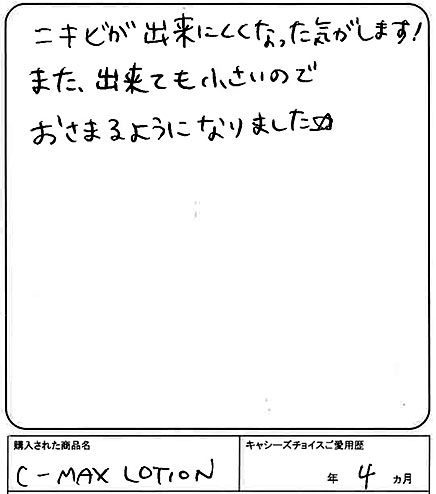 ニキビが出来にくくなった気がします!
また、出来ても小さいので
おさまるようになりました☆
購入された商品名
キャシーズチョイスご愛用歴
C-MAX LOTION
年 4 ヵ月